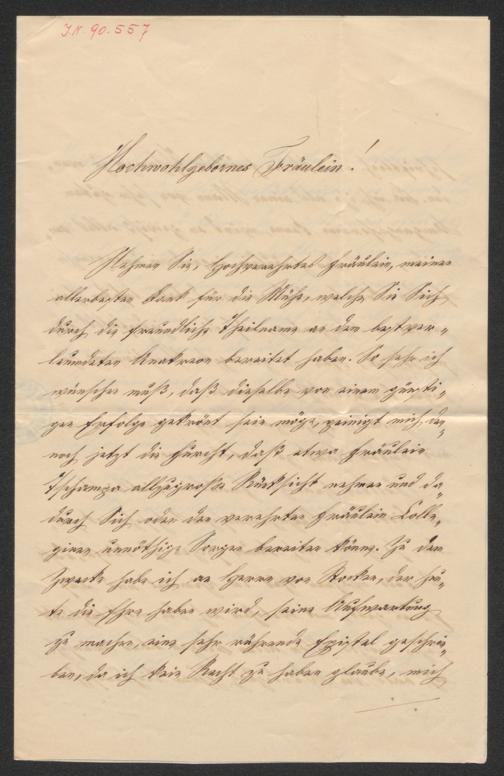 J.N. 90.557
Hochwohlgebornes Fräulein!
Nehmen Sie, hochverehrtes Fräulein, meinen
allerbesten Dank für die Mühe, welche Sie Sich
durch die freundliche Theilname an den bestver-
leumdeten Anakreon bereitet haben. So sehr ich
wünschen muß, daß dieselbe von einem günsti-
gen Erfolge gekrönt sein möge, peinigt mich den-
noch jetzt die Furcht, daß etwa Fräulein
Tschampa allzugroße Rücksicht nehmen und da-
durch Sich oder den verehrten Fräulein Colle-
ginen unnöthige Sorgen bereiten könne. Zu dem
Zwecke habe ich an Herrn von Stocken, der heu-
te die Ehre haben wird, seine Aufwartung
zu machen, eine sehr rührende Epistel geschrie-
ben, da ich kein Recht zu haben glaube, mich